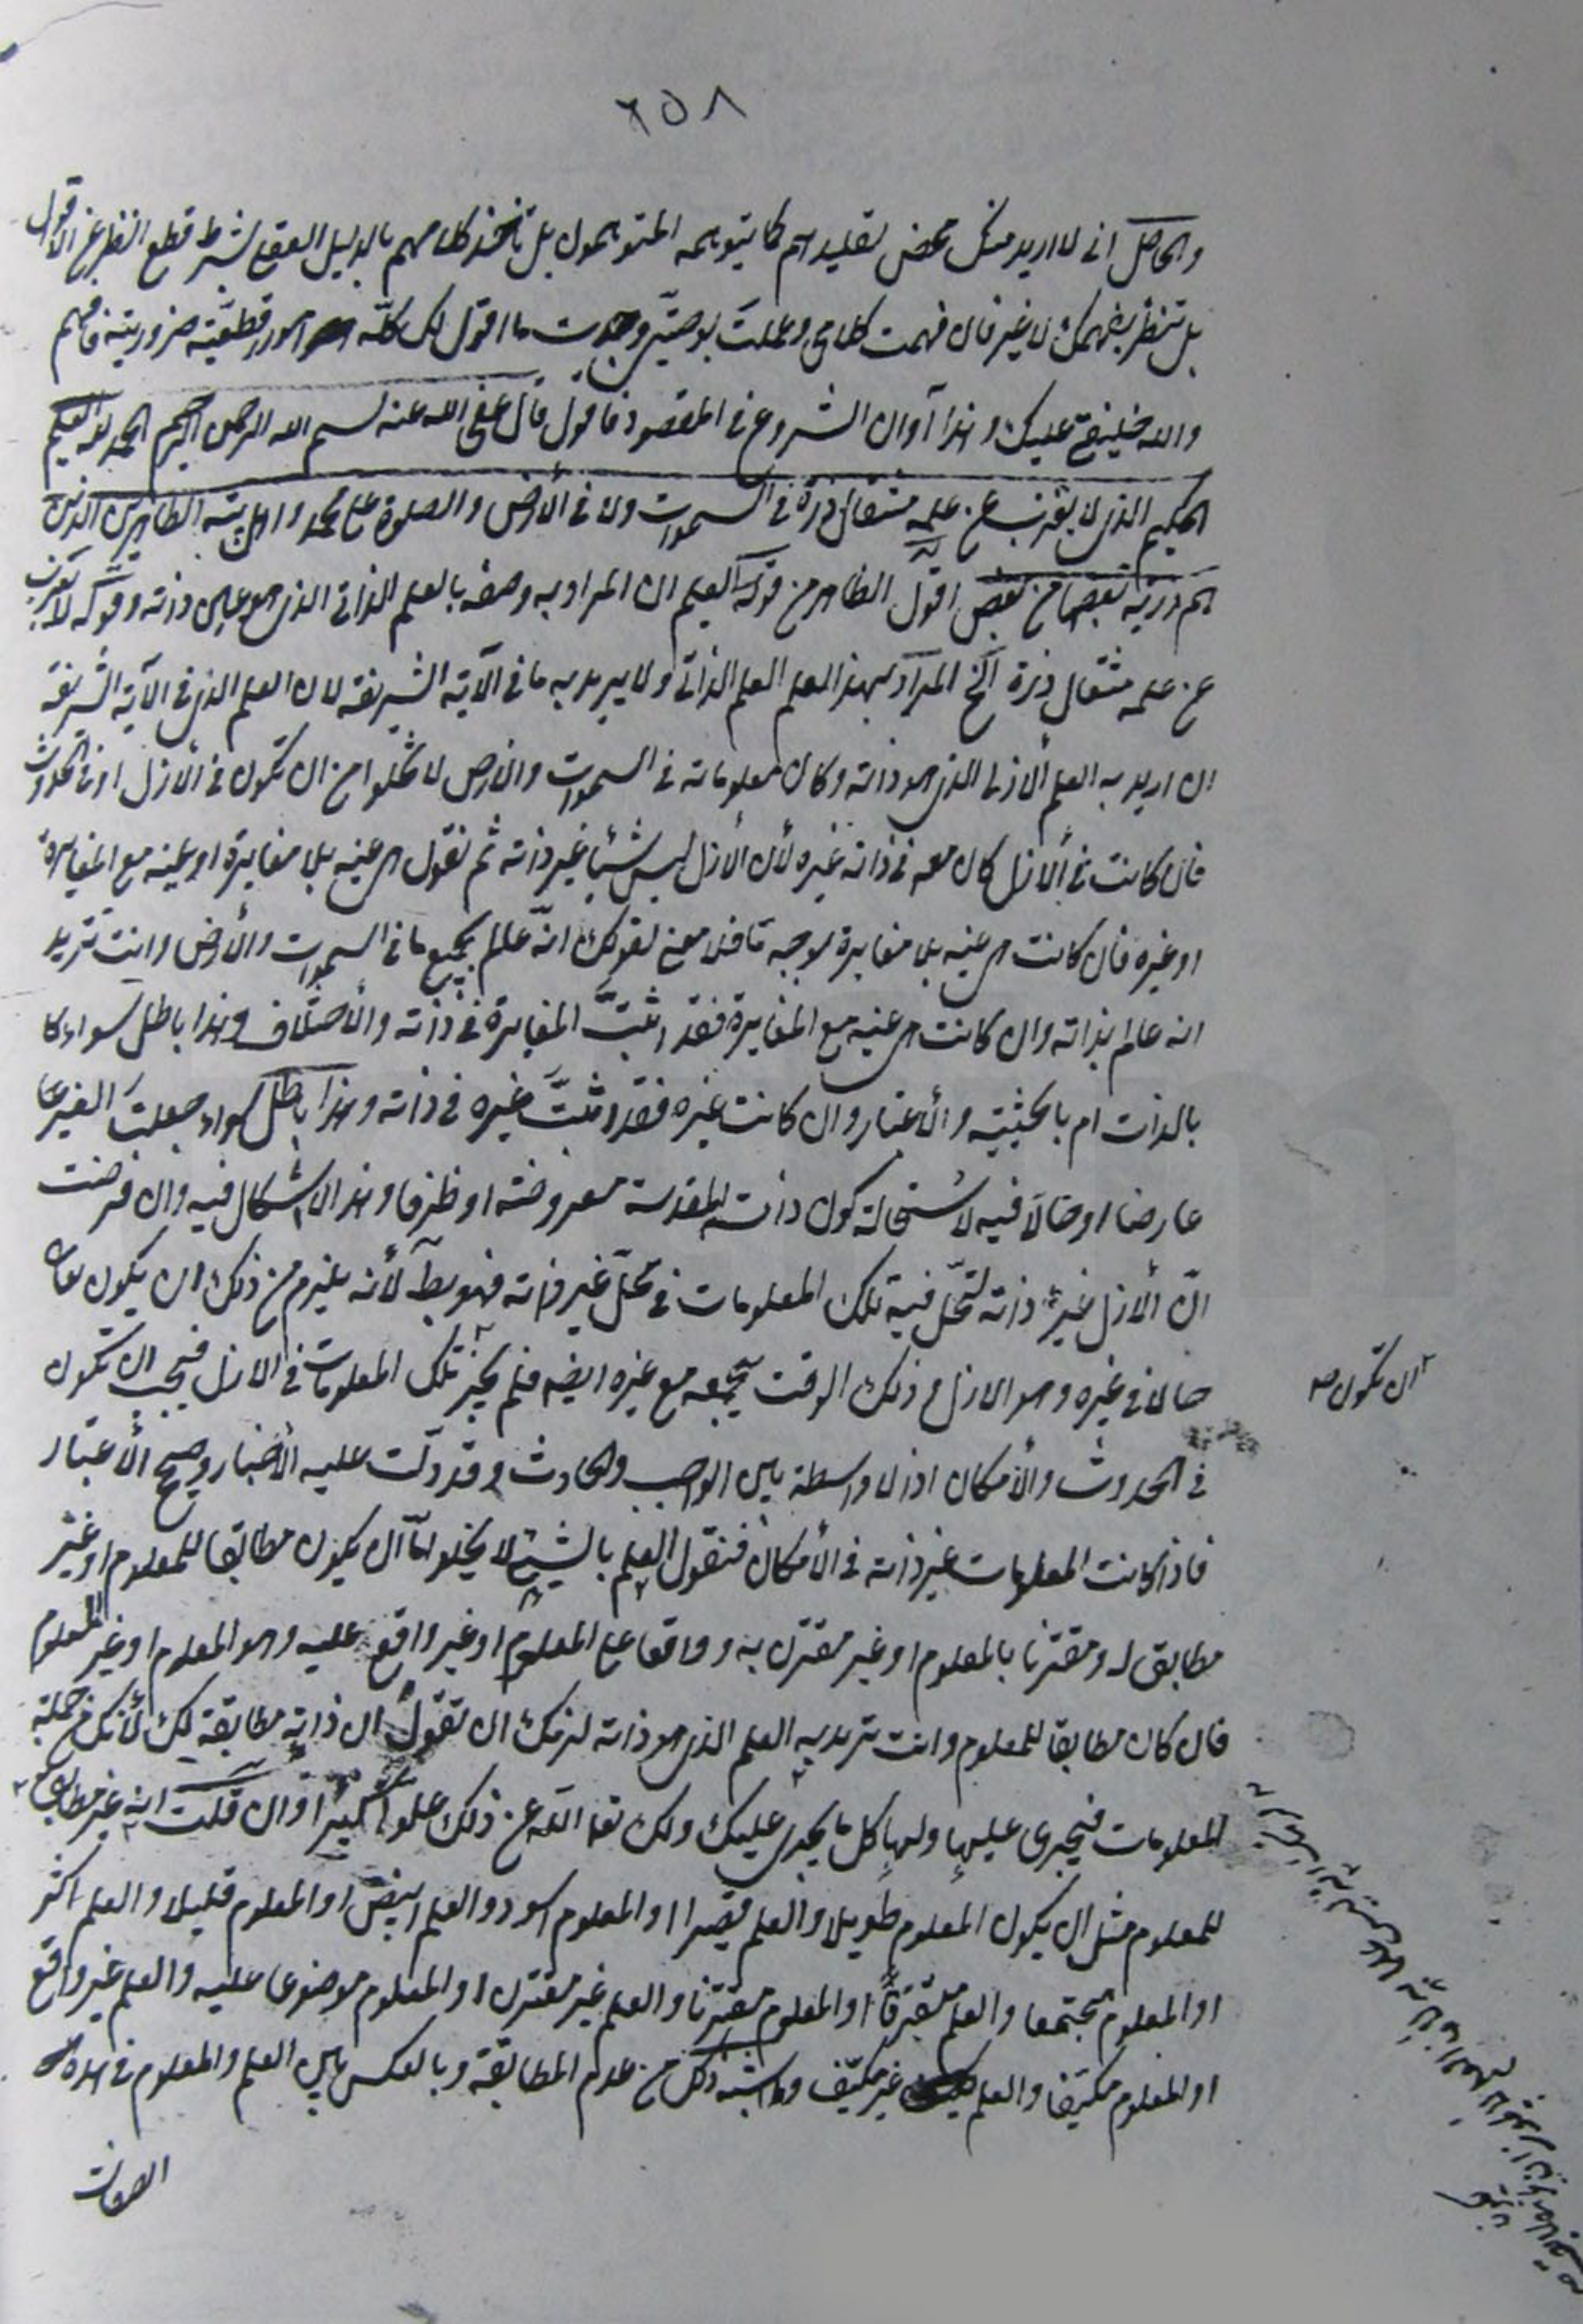 ٢٥٨
والحاصل انى لا اريد منك محض تقليدهم كما يتوهمه المتوهمون بل تأخذ كلامهم بالدليل العقلى بشرط قطع النظر عن
بل تنظر بفهمك لا غير فان فهمت كلامى وعملت بوصيتى وجدت ما اقول لك كلّه امور قطعيّة ضرورية فافهم
والله خليفتى عليك وهذا آوان الشروع فى المقصود فاقول قال عفى الله عنه بسم الله الرحمن الرحيم الحمد لله العليم
الحكيم الذى لا يعزب عن علمه مثقال ذرة فى السموات ولا فى الأرض والصلوة على محمد واهل بيته الطاهرين الذين
هم ذرية بعضها من بعض اقول الظاهر من قوله العليم ان المراد به وصفه بالعلم الذاتى الذى هو عين ذاته وقوله لا يعزب
عن علمه مثقال ذرة الخ المراد بهذا العلم العلم الذاتى ولا يريد به ما فى الآية الشريفة لان العلم الذى فى الآية الشريفة
ان اريد به العلم الأزلى الذى هو ذاته وكان معلوماته فى السموات والأرض لا تخلوا من ان تكون فى الأزل او فى الحدوث
فان كانت فى الأزل كان معه فى ذاته غيره لأن الأزل ليس شيئا غير ذاته ثم نقول هى عينه بلا مغايرة او عينه مع المغايرة
او غيره فان كانت هى عينه بلا مغايرة بوجه ما فلا معنى لقولك انّه عالم بجميع ما فى السموات والأرض وانت تريد
انه عالم بذاته وان كانت هى عينه مع المغايرة فقد اثبتَّ المغايرة فى ذاته والأختلاف وهذا باطل سواء كا
بالذات ام بالحيثية والأعتبار وان كانت غيره فقد اثبتَّ غيره فى ذاته وهذا باطل سواء جعلتَ الغير
عارضا او حالا فيه لأستحالة كون ذاته المقدسة معروضة او ظرفا وهذا لا اشكال فيه وان فرضت
انّ الأزل غير ذاته لتحلّ فيه تلك المعلومات فى محلّ غير ذاته فهو بط لأنه يلزم من ذلك ان يكون تعالى
حالا فى غيره وهو الازل و ذلك الوقت يجمعه مع غيره ايضه فلم يجز تلك المعلومات فى الازل فيجب ان تكون
ان تكون صح
فى الحدوث والأمكان اذ لا واسطة بين الواجب والحادث وقد دلّت عليه الأخبار وصحيح الأعتبار
فاذا كانت المعلومات غير ذاته فى الأمكان فنقول العلم بالشيئ لا يخلو امّا ان يكون مطابقا للمعلوم او غير
مطابق له ومقترنا بالمعلوم او غير مقترن به وواقعا على المعلوم او غير واقع عليه وهو المعلوم او غير المعلوم
فان كان مطابقا للمعلوم وانت تريد به العلم الذى هو ذاته لزمك ان تقول ان ذاته مطابقة لك لأنك من جملة
المعلومات فيجرى عليها ولها كل ما يجرى عليك ولك تعا الله عن ذلك علوا كبيرا وان قلت انه غير مطابق
للمعلوم مثل ان يكون المعلوم طويلا والعلم قصيرا او المعلوم اسود والعلم ابيض او المعلوم قليلا والعلم اكثر
او المعلوم مجتمعا والعلم مفترقا او المعلوم مقترنا والعلم غير مقترن او المعلوم موضوعا عليه والعلم غير واقع
او المعلوم مكيّفا والعلم غير مكيّف وما اشبه ذلك من عدم المطابقة وبالعكس بين العلم والمعلوم فى هذه
الصفات